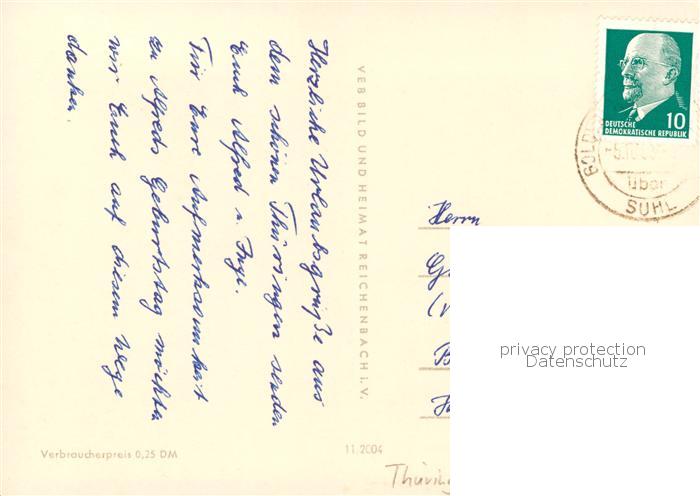 Herzliche Urlaubsgrüße aus
dem schönen Thüringen senden
Euch Alfred u. Inge.
Für Eure Aufmerksamkeit
zu Alfreds Geburtstag möchten
wir Euch auf diesem Wege
danken.
VEB BILD UND HEIMAT REICHENBACH i. V.
Verbraucherpreis 0,25 DM
11.2004
DEUTSCHE 10
DEMOKRATISCHE REPUBLIK
über
SUHL
Herrn
privacy protection
Datenschutz